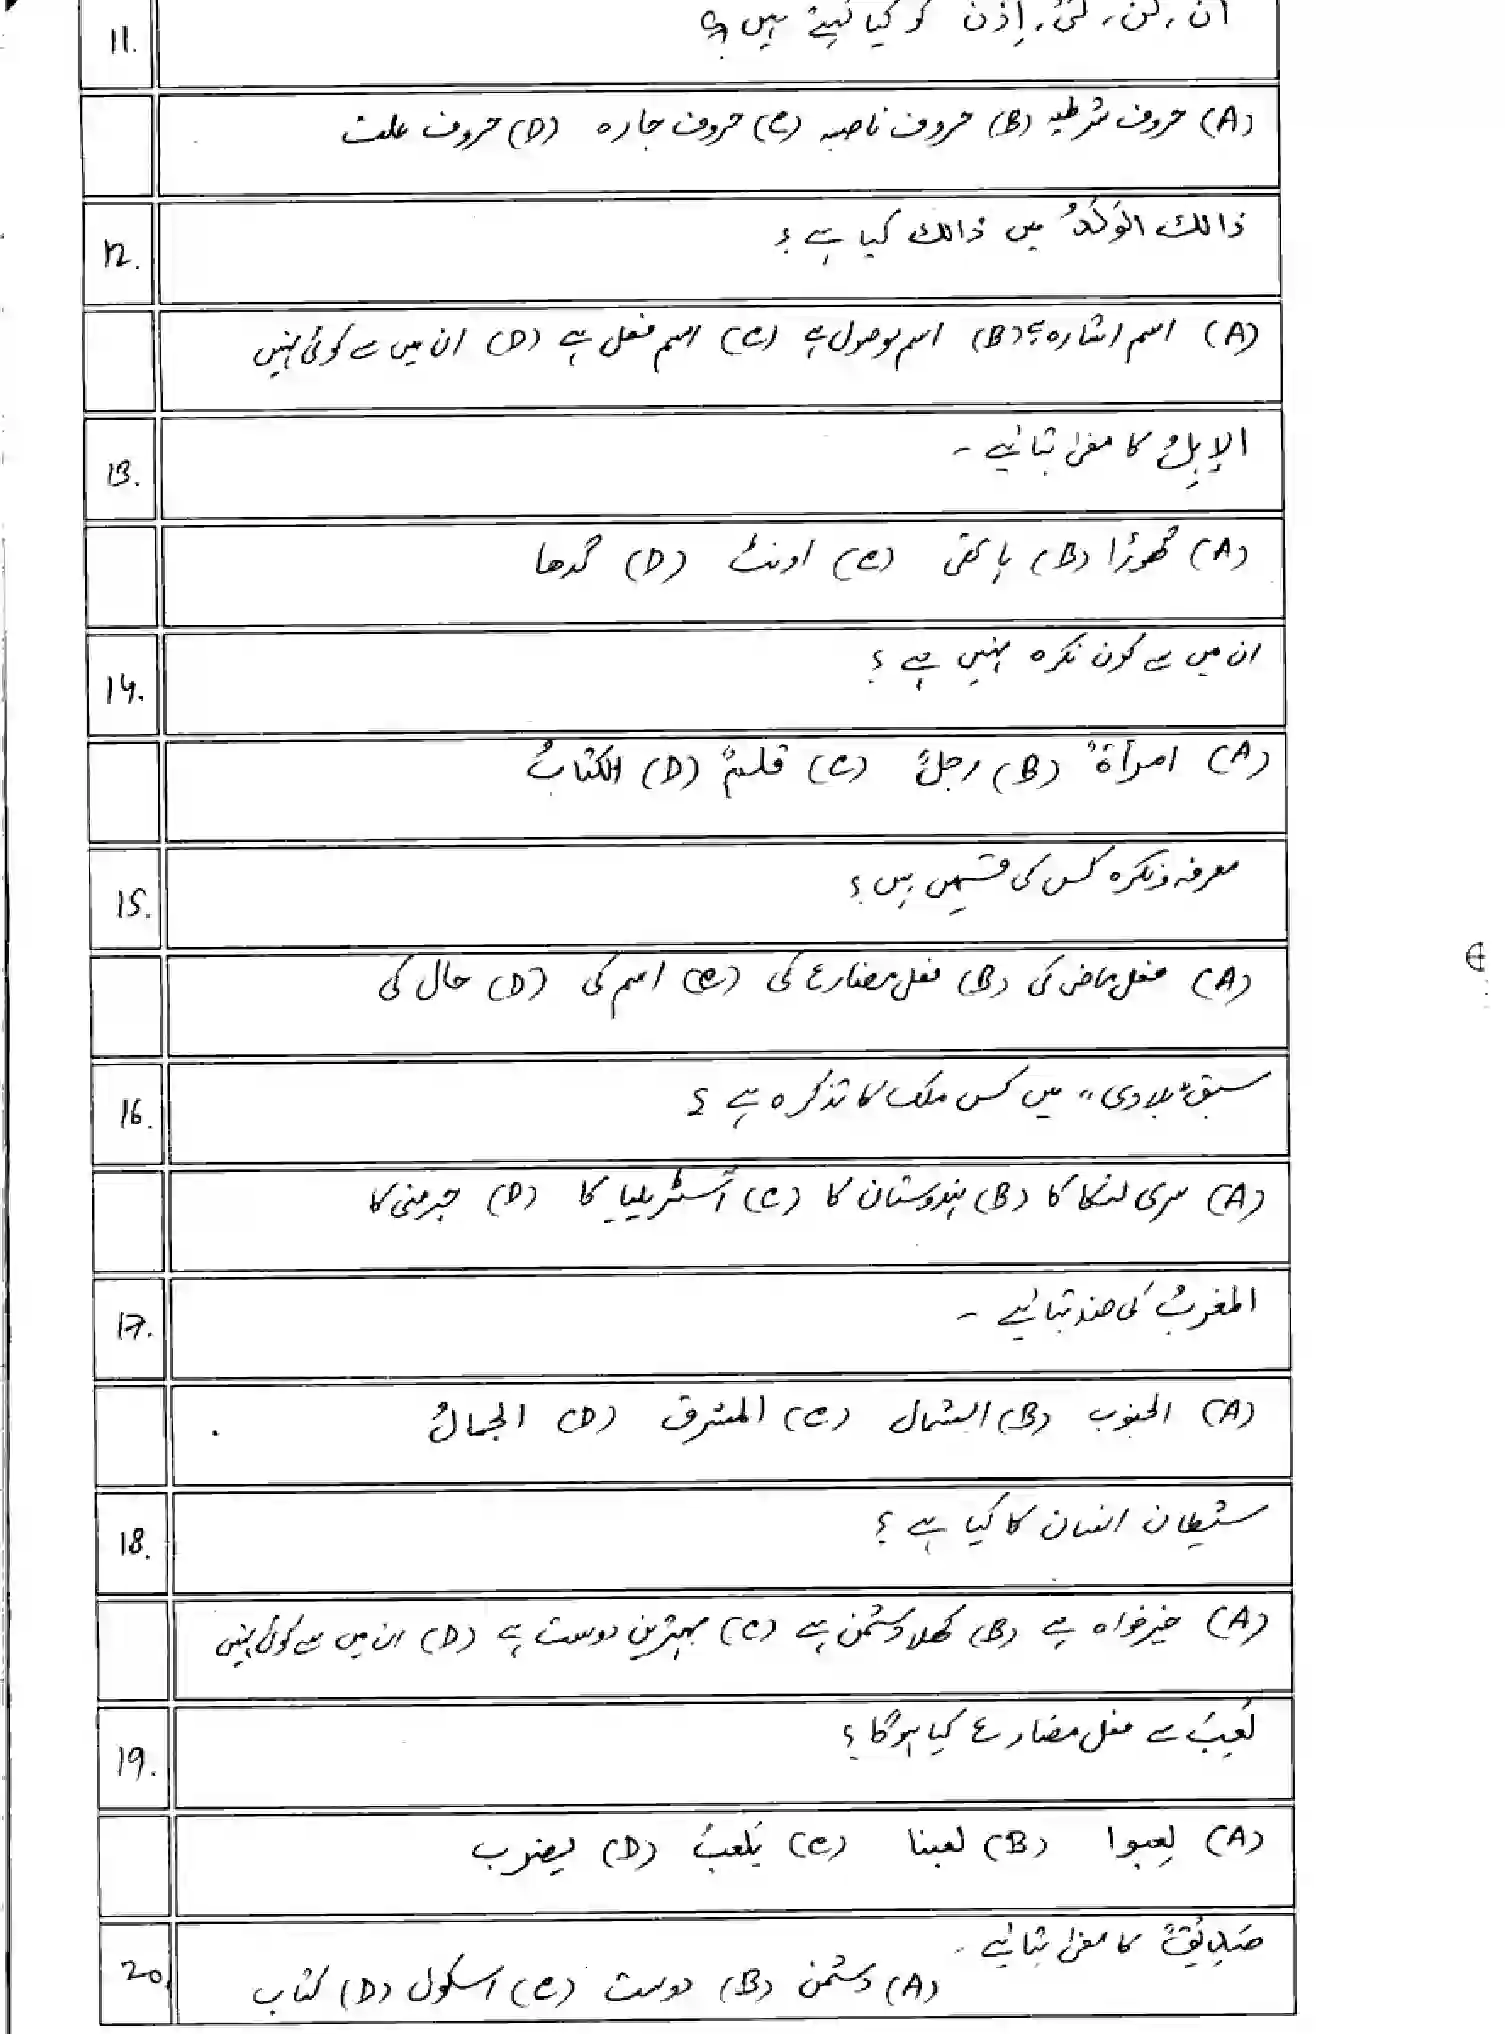 11. أن، لن، كَیْ، إذن کو کیا کہتے ہیں؟
(A) حروف شرطیہ (B) حروف ناصبہ (C) حروف جارہ (D) حروف علت
12. ذالك الوَلَدُ میں ذالك کیا ہے؟
(A) اسم اشارہ ہے (B) اسم موصول ہے (C) اسم فعل ہے (D) ان میں سے کوئی نہیں
13. الإبِلُ کا معنیٰ بتائیے۔
(A) گھوڑا (B) ہاتھی (C) اونٹ (D) گدھا
14. ان میں سے کون نکرہ نہیں ہے؟
(A) امرأةٌ (B) رجلٌ (C) قلمٌ (D) الكتابُ
15. معرفہ ونکرہ کس کی قسمیں ہیں؟
(A) فعل ماضی کی (B) فعل مضارع کی (C) اسم کی (D) حال کی
16. سبق "بلادی" میں کس ملک کا تذکرہ ہے؟
(A) سری لنکا کا (B) ہندوستان کا (C) آسٹریلیا کا (D) جرمنی کا
17. المغربُ کی ضد بتائیے۔
(A) الجنوب (B) الشمال (C) المشرق (D) الجمالُ
18. شیطان انسان کا کیا ہے؟
(A) خیرخواہ ہے (B) کھلا دشمن ہے (C) بہترین دوست ہے (D) ان میں سے کوئی نہیں
19. لَعِبَ سے فعل مضارع کیا ہوگا؟
(A) لعِبوا (B) لعبنا (C) يَلعبُ (D) يضرب
20. صَدِيْقٌ کا معنیٰ بتائیے۔
(A) دشمن (B) دوست (C) اسکول (D) کتاب